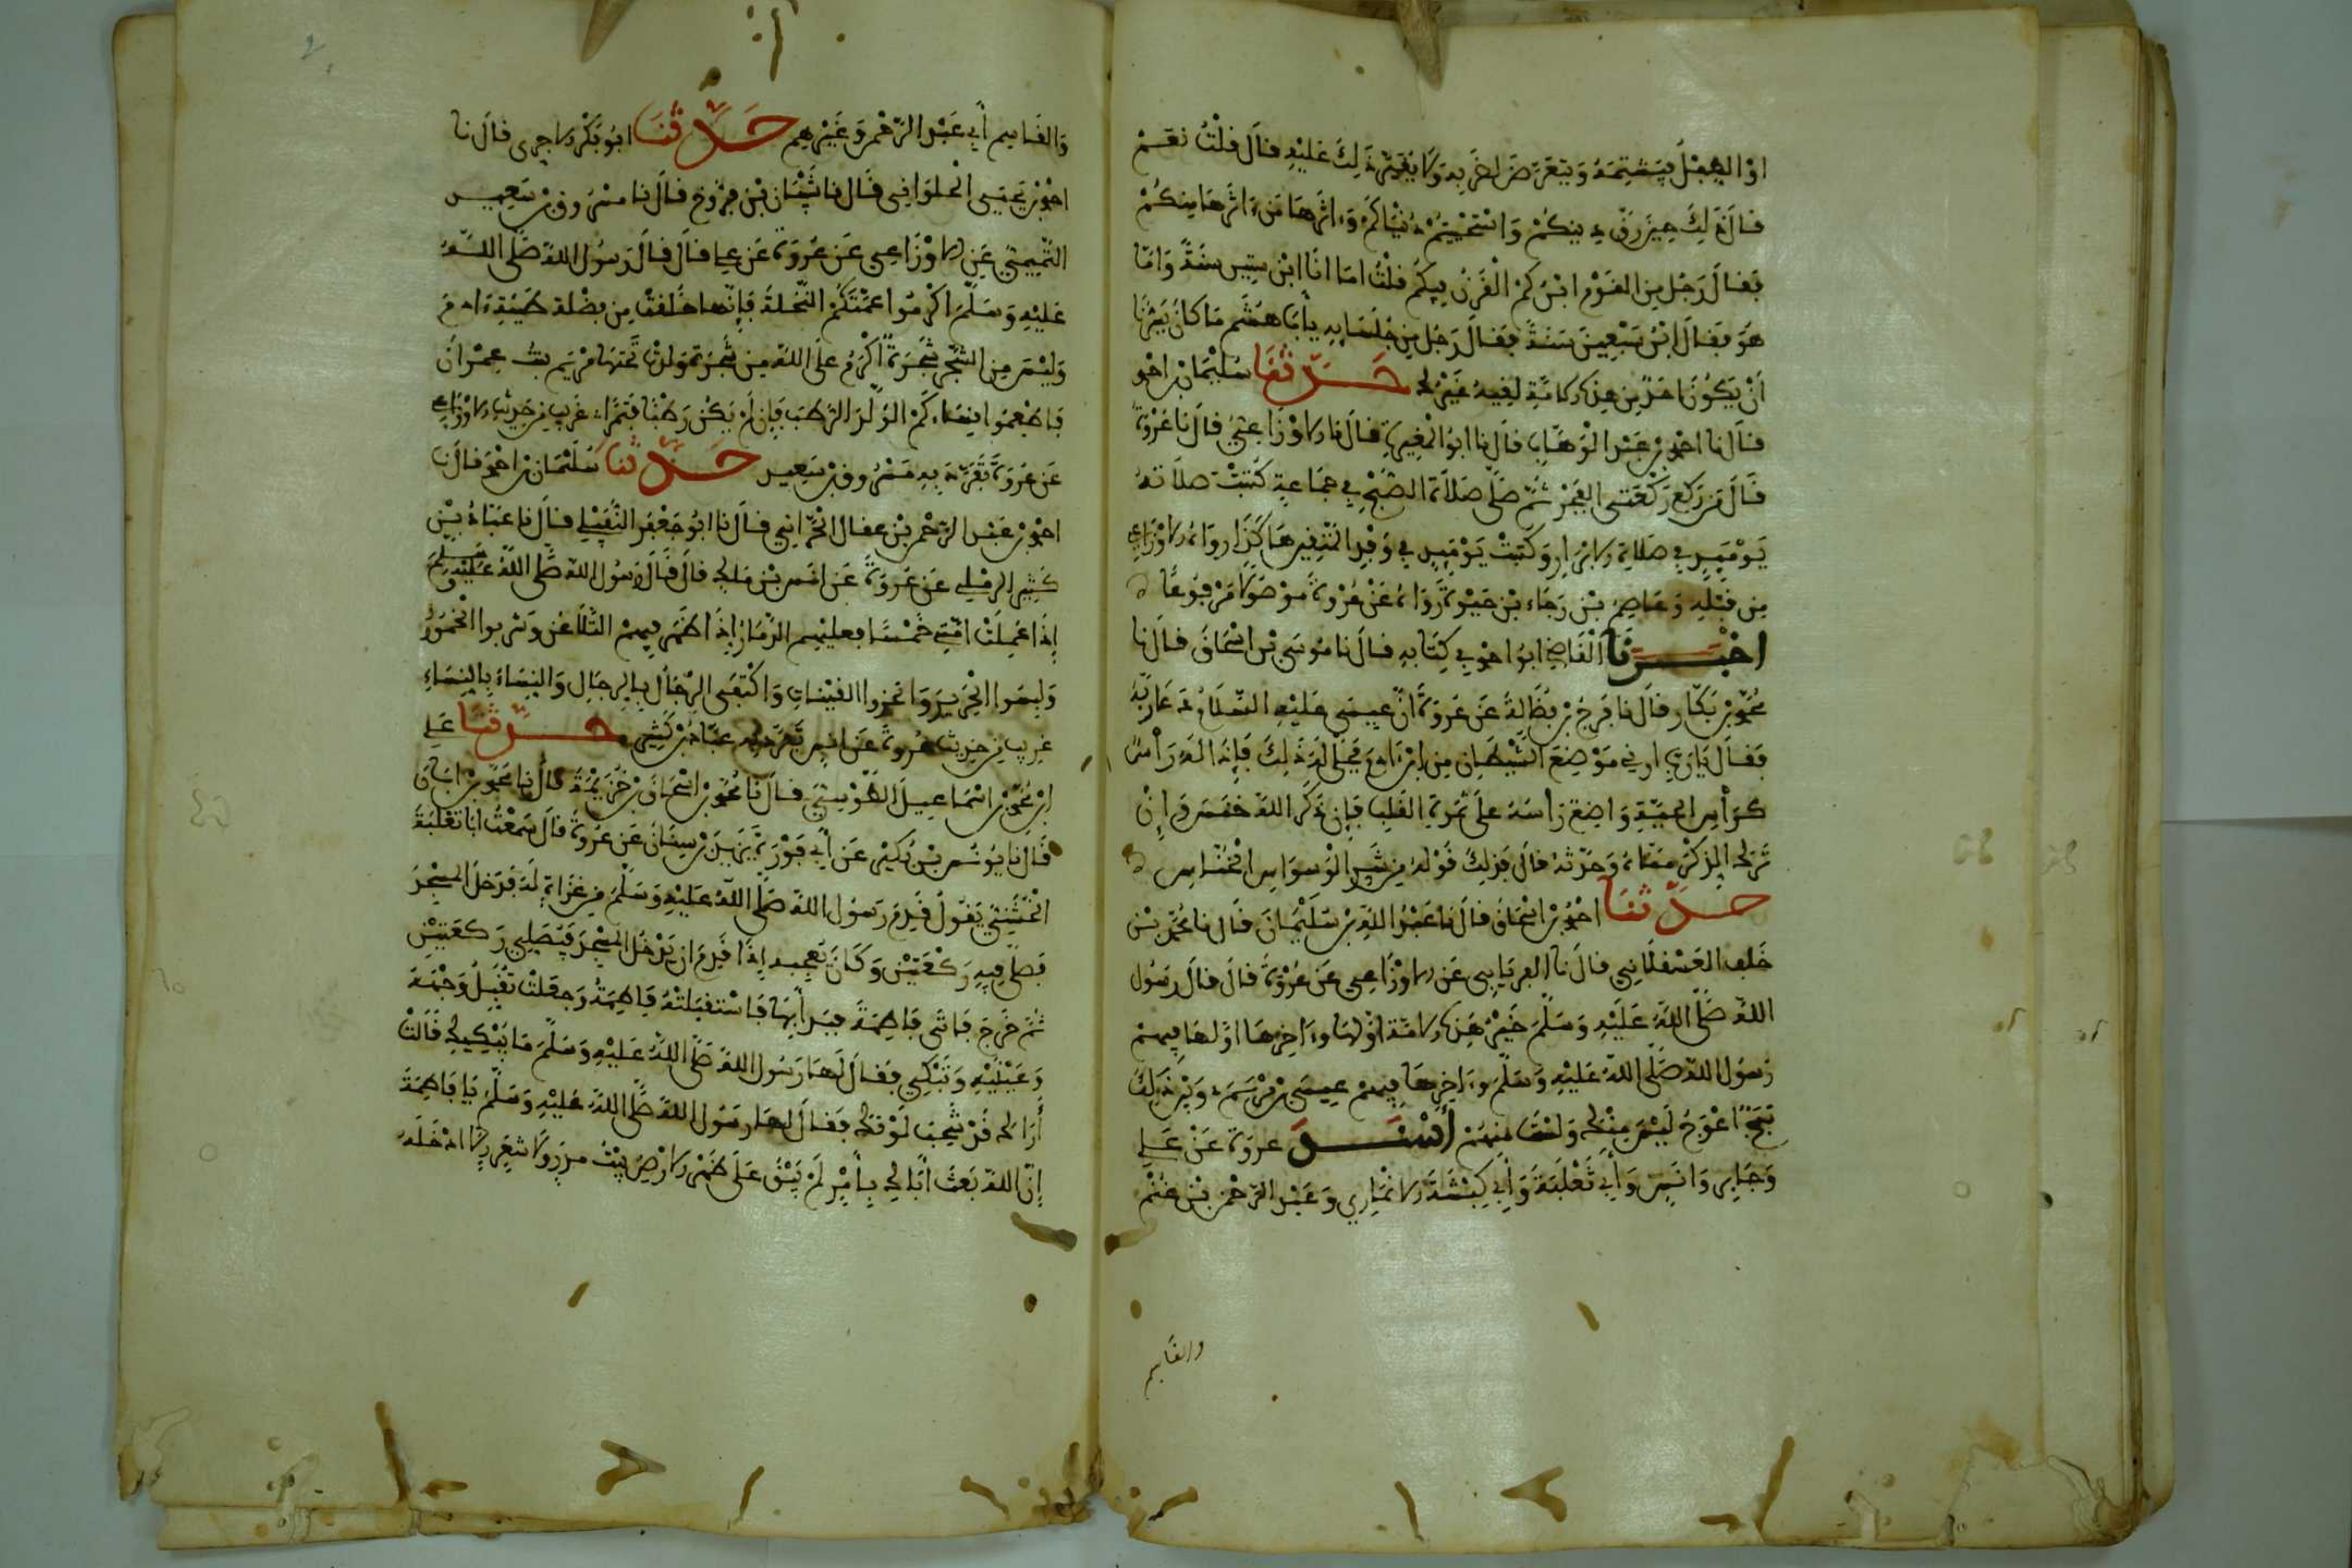 او الطفل فيشتمه ويتعرض لضربه ولا يغير ذلك عليه قال قلت نعم
قال ذلك حين رق دينكم واستحييتم دنياكم وءاثرها من ءاثرها منكم
فقال رجل من القوم ابن كم القرن فيكم قلت اما انا ابن ستين سنة واما
هو فقال ابن سبعين سنة فقال رجل من جلسايه يأبا هشم ما كان يسرنا
أن يكون احد من هذه الامة لقيه غيرك حدثنا سليمان بن احمد
قال نا احمد بن عبد الوهاب قال نا ابو المغيرة قال نا الاوزاعي قال نا عروة
قال من ركع ركعتي الفجر ثم صلى صلاة الصبح في جماعة كتبت صلاته
يوميذ في صلاة الابرار وكتب يوميذ في وفد المتقين هكذا رواه الاوزاعي
من قبله وعاصم بن رجاء بن حيوة رواه عن عروة موصولا مرفوعا
اخبرنا القاضي ابو احمد في كتابه قال نا موسى بن اسحاق قال نا
محمد بن بكار قال نا فرج بن فضالة عن عروة أن عيسى عليه السلام دعا ربه
فقال يا رب ارني موضع الشيطان من ابن ءادم فجلى له ذلك فإذا له رأس
كرأس الحية واضع رأسه على ثمرة القلب فإن ذكر الله خنس وإن
ترك الذكر مناه وحدثه قال فذلك قوله من شر الوسواس الخناس
حدثنا احمد بن اسحاق قال نا عبد الله بن سليمان قال نا محمد بن
خلف العسقلاني قال نا الفريابي عن الاوزاعي عن عروة قال قال رسول
الله صلى الله عليه وسلم خير هذه الامة اولها وءاخرها اولها فيهم
رسول الله صلى الله عليه وسلم وءاخرها فيهم عيسى بن مريم وبين ذلك
ثبج أعوج ليس منك ولست منهم أسند عروة عن علي
وجابر وانس وأبي ثعلبة وأبي كبشة الانماري وعبد الرحمن بن غنم
والقاسم
والقاسم أبي عبد الرحمن وغيرهم حدثنا ابو بكر الاجري قال نا
احمد بن يحيى الحلواني قال نا شيبان بن فروخ قال نا مسرور بن سعيد
التميمي عن الاوزاعي عن عروة عن علي قال قال رسول الله صلى الله
عليه وسلم اكرموا عمتكم النخلة فإنها خلقت من فضلة طينة ءادم
وليس من الشجر شجرة أكرم على الله من شجرة ولدت تحتها مريم بنت عمران
فاطعموا نساءكم الولد الرطب فإن لم يكن رطبا فتمرا غريب من حديث الاوزاعي
عن عروة تفرد به مسرور بن سعيد حدثنا سليمان بن احمد قال نا
احمد بن عبد الرحمن بن عفال الحراني قال نا ابو جعفر النفيلي قال نا عباد بن
كثير الرملي عن عروة عن انس بن ملك قال قال رسول الله صلى الله عليه وسلم
إذا عملت امتي خمسا فعليهم الدمار إذا ظهر فيهم التلاعن وشربوا الخمور
ولبسوا الحرير واتخذوا القينات واكتفى الرجال بالرجال والنساء بالنساء
غريب من حديث عروة عن انس تفرد به عباد بن كثير حدثنا علي
ابن محمد بن اسماعيل الطوسي قال نا محمد بن اسحاق بن خزيمة قال نا محمد بن ابان
قال نا يونس بن بكير عن أبي فروة يزيد بن سنان عن عروة قال سمعت أبا ثعلبة
الخشني يقول قدم رسول الله صلى الله عليه وسلم من غزاة له فدخل المسجد
فصلى فيه ركعتين وكان يعجبه إذا قدم ان يدخل المسجد فيصلي ركعتين
ثم خرج فاتى فاطمة فبدأ بها فاستقبلته فاطمة وجعلت تقبل وجهه
وعينيه وتبكي فقال لها رسول الله صلى الله عليه وسلم ما يبكيك قالت
أراك قد شحب لونك فقال لها رسول الله صلى الله عليه وسلم يا فاطمة
إن الله بعث أباك بأمر لم يبق على ظهر الارض بيت مدر ولا شعر الا ادخله